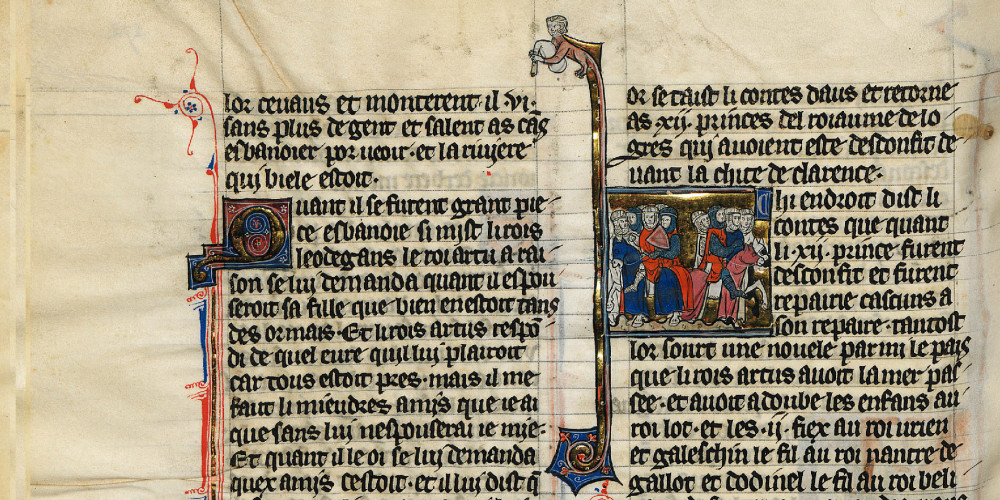 lor cevaus et monterent· il ·vi·
sans plus de gent et salent as cāṕs
esbanoier por veoir· et la riviere
qui biele estoit·
Quant il se furent grant pie-
ce esbanoie si mist li rois
leodegans le roi artu a rai-
son se lui demanda quant il espou
seroit sa fille que bien en estoit tans
des or mais· Et li rois artus respō-
di de quel eure quil lui plairoit
car tous estoit pres· mais il me
faut li mieudres amis que ie ai
que sans lui nespouserai ie mie·
Et quant il le oi se lui demanda
quex amis cestoit· et il lui dist q̄
or se taist li contes daus et retorne
as ·xij· princes del roiaume de lo
gres qui avoient este desconfit de
vant la chite de clarence·
Chi endroit dist li
contes que quant
li ·xij· prince furent
desconfit et furent
repairie cascuns a
son repaire· tantost
lor sourt une novele par mi le pais
que li rois artus avoit la mer pas
see· et avoit adoube les enfans au
roi lot· et les ·ij· fiex au roi urien
et galeschin le fil au roi nantre de
gallot et dodinel le fil au roi beli